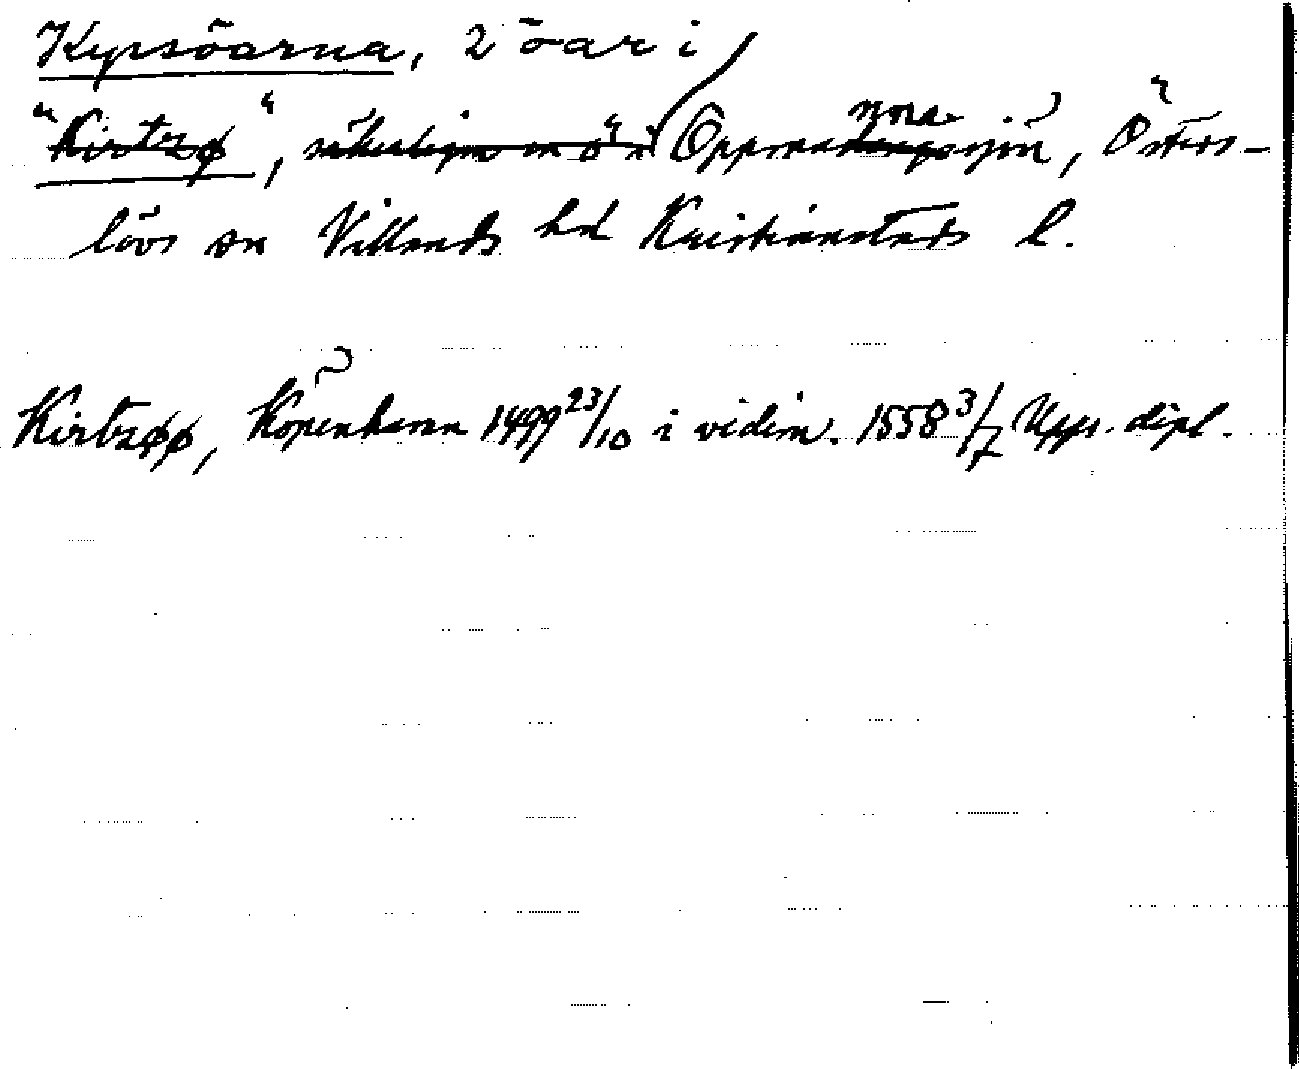 Kyrsöarna, 2 öar i
"Kirtzø", säkerligen en ö i Oppmannasjön, Östers-
lövs sn Villands hd Kristianstads l.
Kirtzøø, Köpenhamn 1499 23/10 i vidim. 1558 3/7 Upps. dipl.